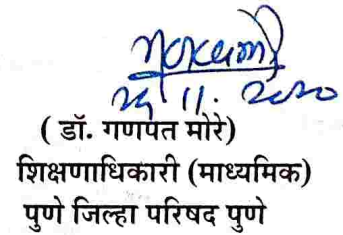 11. 2020
( डॉ. गणपत मोरे)
शिक्षणाधिकारी (माध्यमिक)
पुणे जिल्हा परिषद पुणे